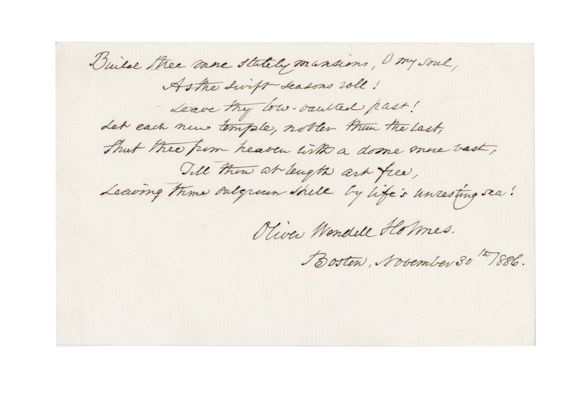 Build thee more stately mansions, O my soul,
As the swift seasons roll!
Leave thy low-vaulted past!
Let each new temple, nobler than the last,
Shut thee from heaven with a dome more vast,
Till thou at length art free,
Leaving thine outgrown shell by life's unresting sea!
Oliver Wendell Holmes.
Boston, November 30th 1886.